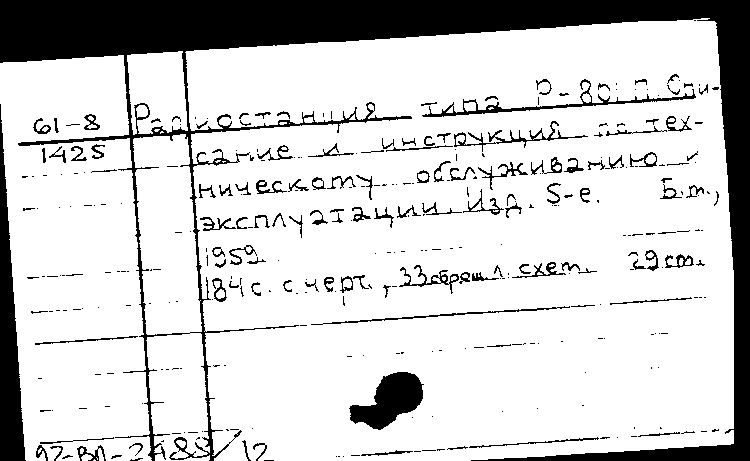 61-8 Радиостанция типа Р-80
1425 сание и инструкция по тех-
ническому обслуживанию и
эксплуатации. Изд. 5-е. Б.м.,
1959.
184 с. с черт., 33 сброш. л. схем. 29 см.
92-ВЛ-2488/12